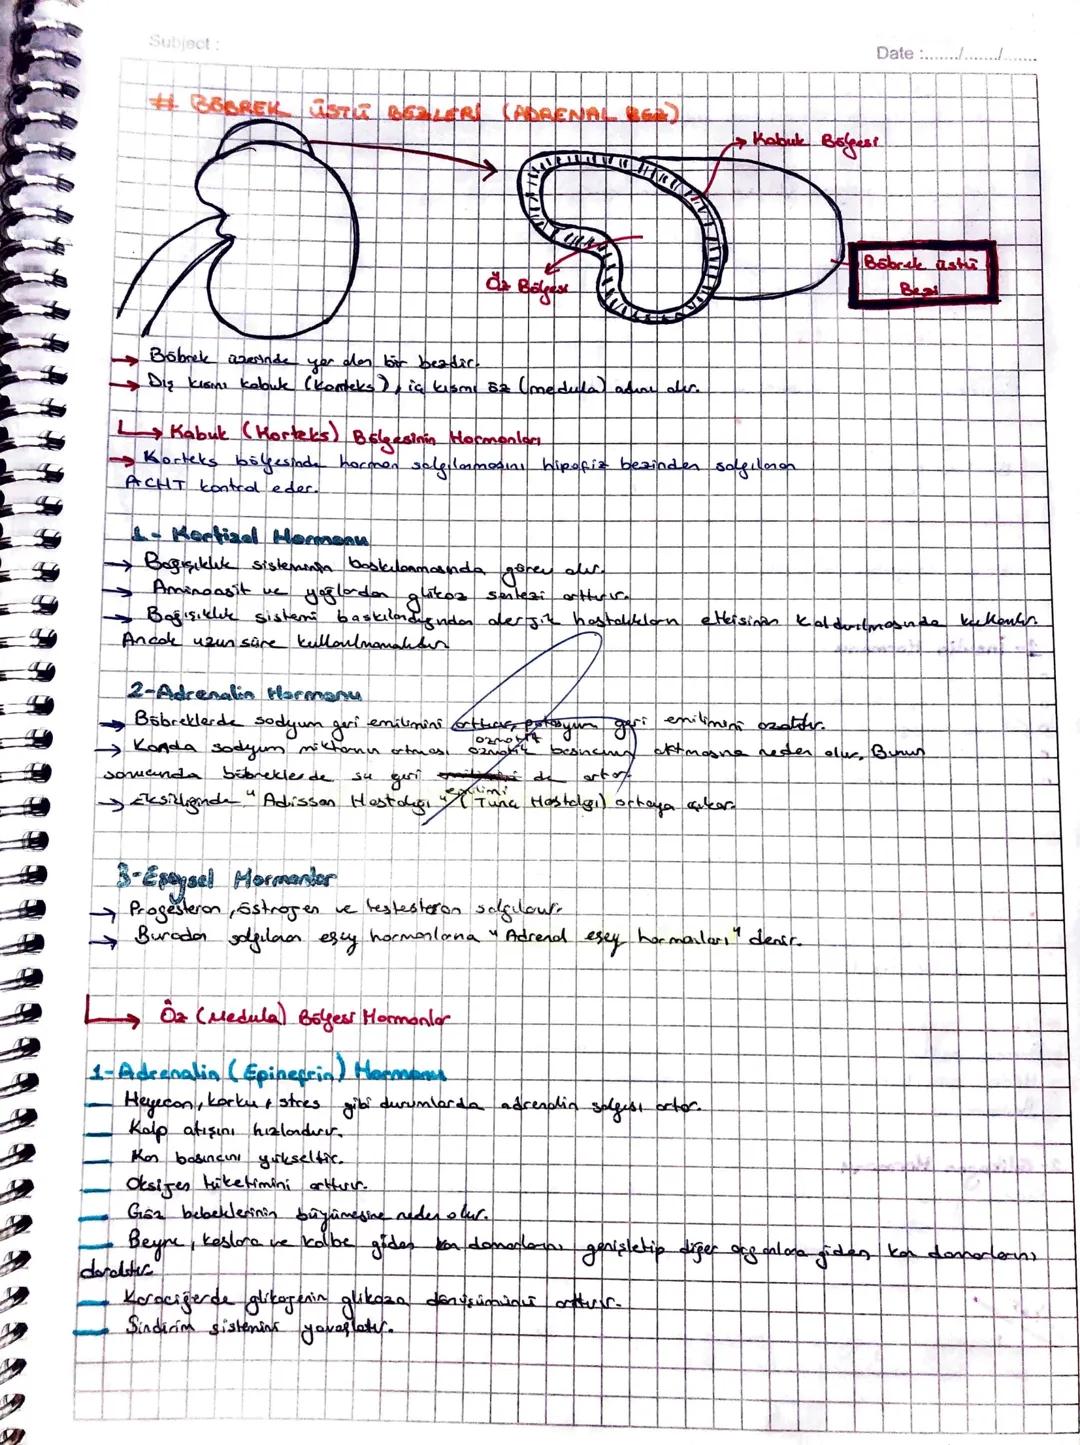 Subject :
Date :......../......../........
# BÖBREK ÜSTÜ BEZLERİ (ADRENAL BEZ)
Kabuk Bölgesi
Öz Bölgesi
Böbrek üstü
Bezi
→ Böbrek üzerinde yer alan bir bezdir.
→ Dış kısmı kabuk (korteks), iç kısmı öz (medula) adını alır.
→ Kabuk (Korteks) Bölgesinin Hormonları
→ Korteks bölgesinde hormon salgılanmasını hipofiz bezinden salgılanan
ACHT kontrol eder.
1- Kortizol Hormonu
→ Bağışıklık sisteminin baskılanmasında görev alır.
→ Aminoasit ve yağlardan glikoz sentezi arttırır.
→ Bağışıklık sistemi baskılandığından alerjik hastalıkların etkisinin kaldırılmasında kullanılır.
Ancak uzun süre kullanılmamalıdır
2-Adrenalin Hormonu
→ Böbreklerde sodyum geri emilimini arttırır, potasyum geri emilimini azaltır.
ozmotik
→ Kanda sodyum miktarının artması ozmotik basıncın artmasına neden olur. Bunun
sonucunda böbreklerde su geri emilimi de artar.
emilimi
→ Eksikliğinde "Adisson Hastalığı" (Tunç Hastalığı) ortaya çıkar.
3-Eşeysel Hormonlar
→ Progesteron, östrojen ve testesteron salgılanır.
→ Buradan salgılanan eşey hormonlarına "Adrenal eşey hormonları" denir.
→ Öz (Medula) Bölgesi Hormonlar
1-Adrenalin (Epinefrin) Hormonu
— Heyecan, korku, stres gibi durumlarda adrenalin salgısı artar.
— Kalp atışını hızlandırır.
— Kan basıncını yükseltir.
— Oksijen tüketimini arttırır.
— Göz bebeklerinin büyümesine neden olur.
— Beyne, kaslara ve kalbe giden kan damarlarını genişletip diğer organlara giden kan damarlarını
daraltır.
— Karaciğerde glikojenin glikoza dönüşümünü arttırır.
— Sindirim sistemini yavaşlatır.